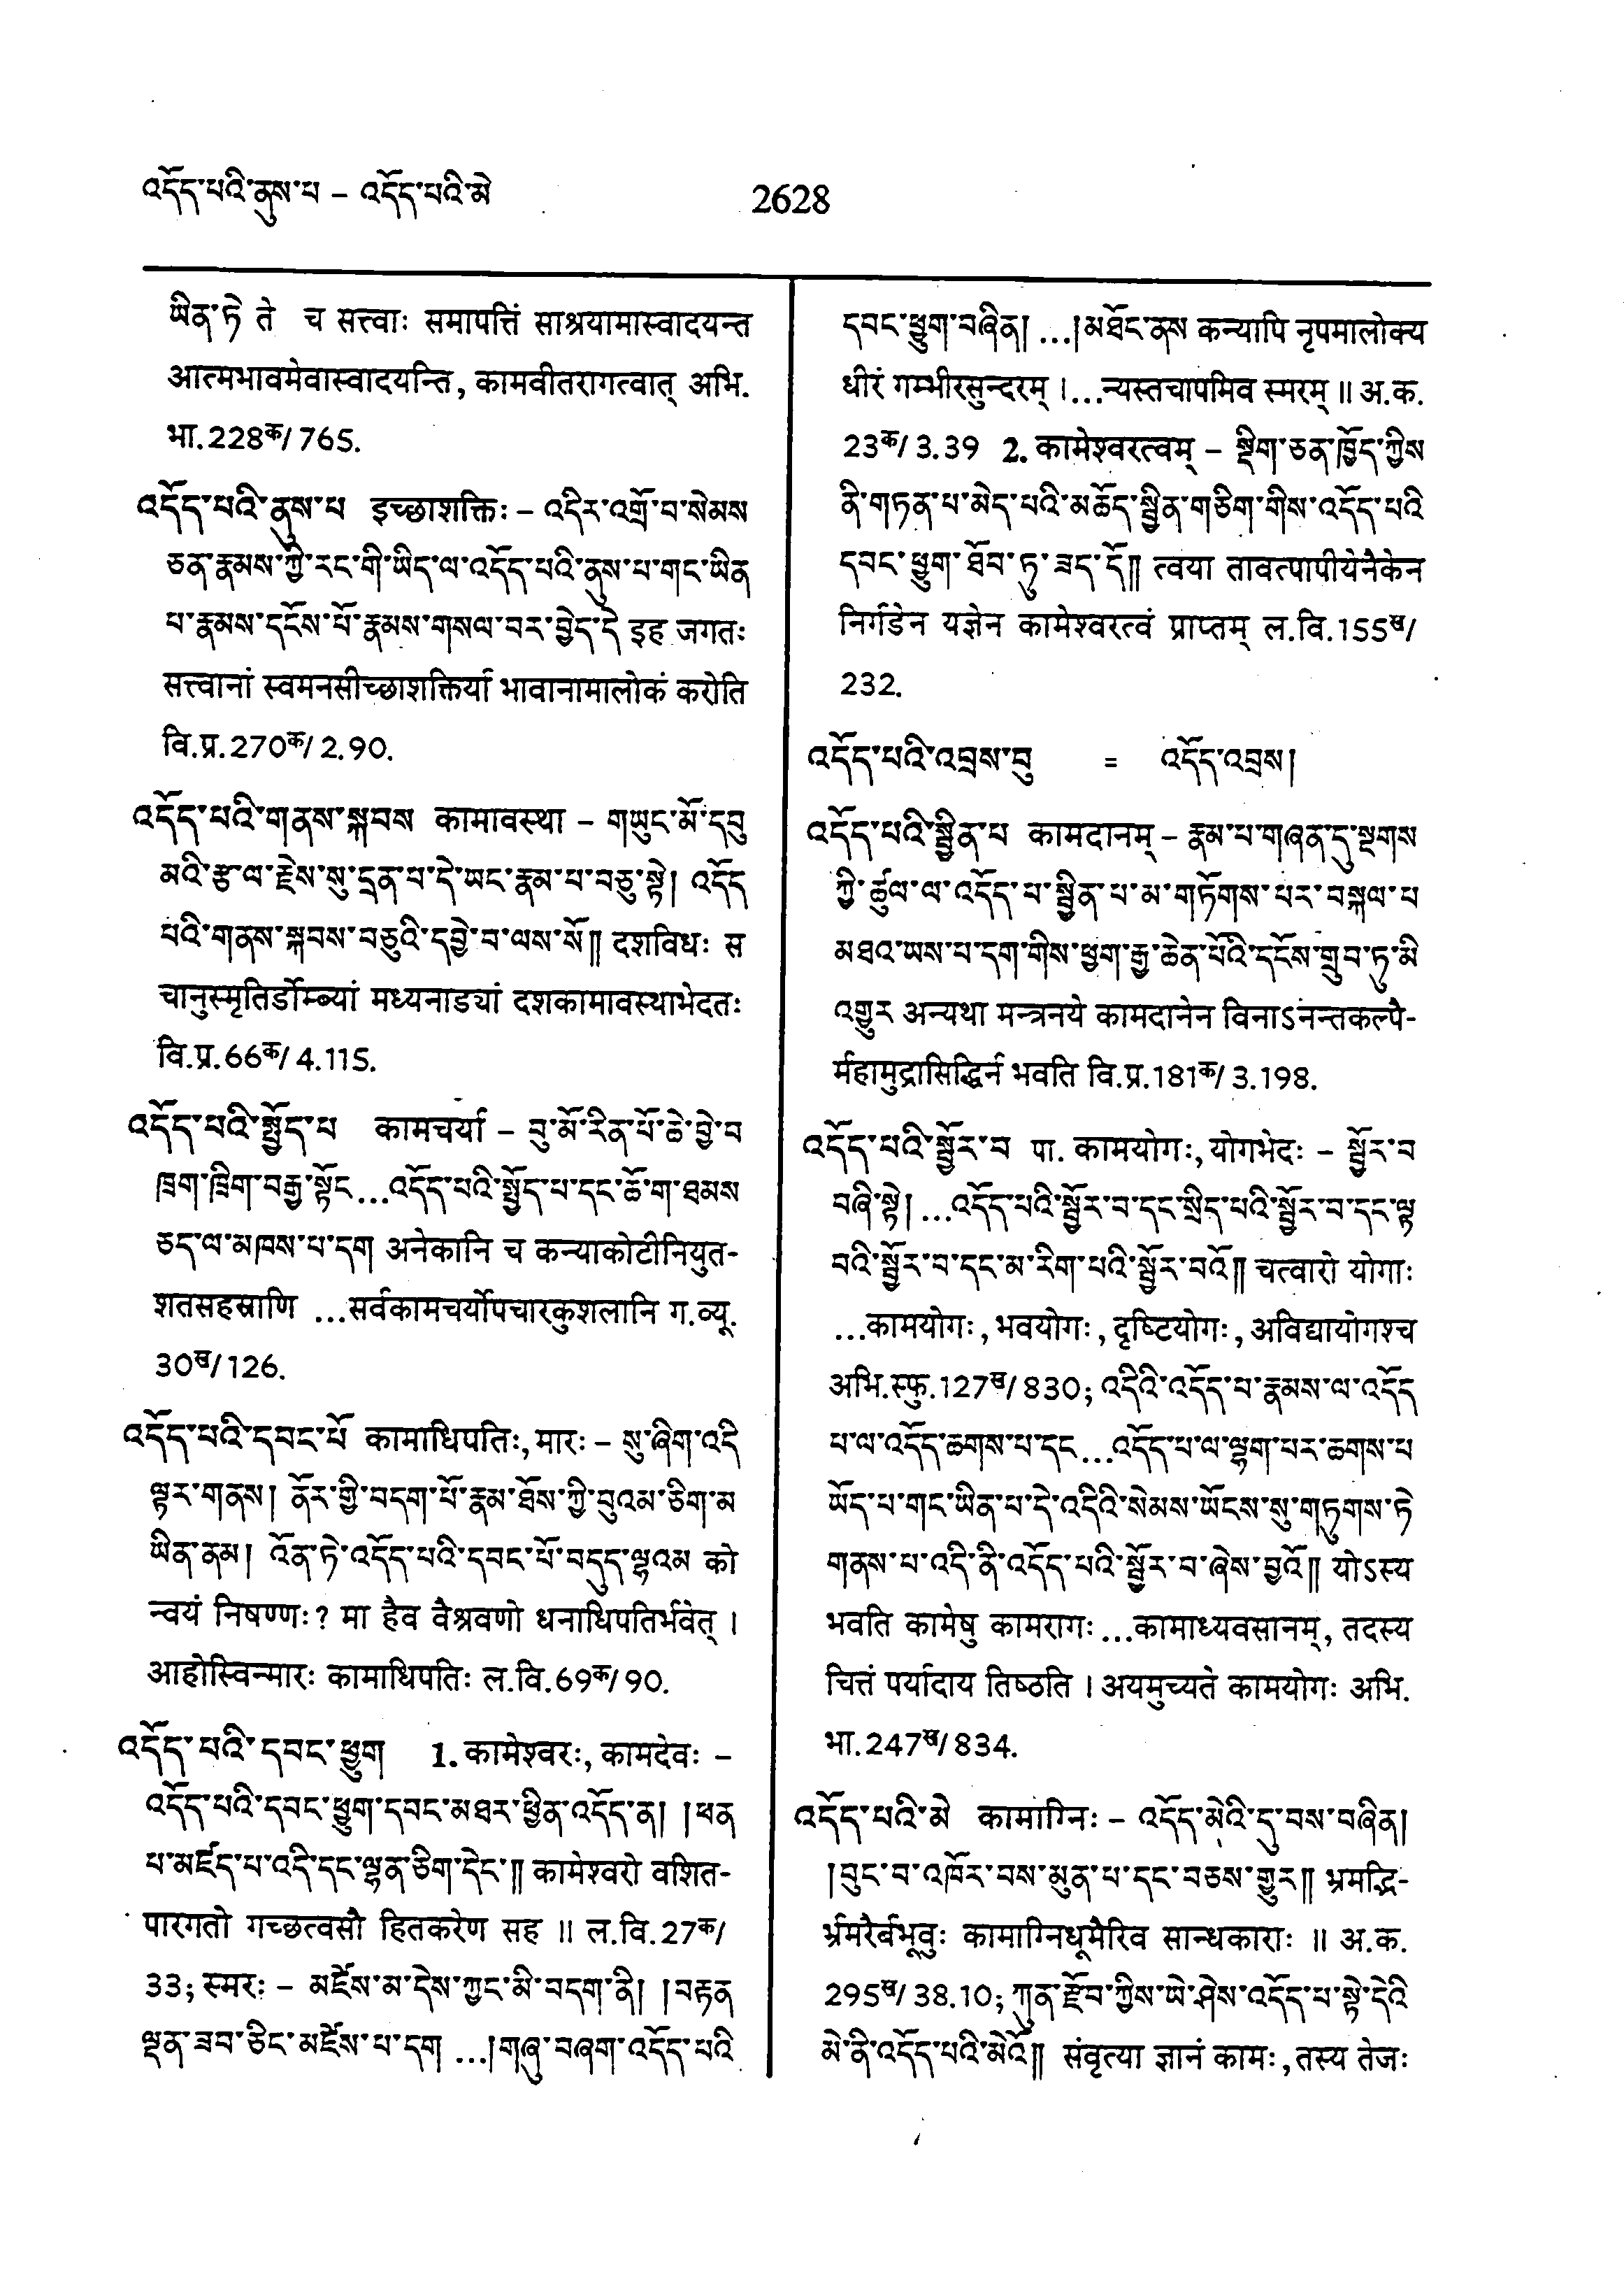 འདོད་པའི་ནུས་པ – འདོད་པའི་མེ
2628
ཡིན་ཏེ ते च सत्त्वाः समापत्तिं साश्रयामास्वादयन्त
आत्मभावमेवास्वादयन्ति, कामवीतरागत्वात् अभि.
भा.228क/765.
འདོད་པའི་ནུས་པ इच्छाशक्तिः – འདིར་འགྲོ་བ་སེམས
ཅན་རྣམས་ཀྱི་རང་གི་ཡིད་ལ་འདོད་པའི་ནུས་པ་གང་ཡིན
པ་རྣམས་དངོས་པོ་རྣམས་གསལ་བར་བྱེད་དེ इह जगतः
सत्त्वानां स्वमनसीच्छाशक्तिर्या भावानामालोकं करोति
वि.प्र.270क/2.90.
འདོད་པའི་གནས་སྐབས कामावस्था – གཡུང་མོ་དབུ
མའི་རྩ་ལ་རྗེས་སུ་དྲན་པ་དེ་ཡང་རྣམ་པ་བཅུ་སྟེ། འདོད
པའི་གནས་སྐབས་བཅུའི་དབྱེ་བ་ལས་སོ༎ दशविधः स
चानुस्मृतिर्डोम्ब्यां मध्यनाड्यां दशकामावस्थाभेदतः
वि.प्र.66क/4.115.
འདོད་པའི་སྤྱོད་པ कामचर्या – བུ་མོ་རིན་པོ་ཆེ་བྱེ་བ
ཁྲག་ཁྲིག་བརྒྱ་སྟོང...འདོད་པའི་སྤྱོད་པ་དང་ཆོ་ག་ཐམས
ཅད་ལ་མཁས་པ་དག अनेकानि च कन्याकोटीनियुत-
शतसहस्राणि ...सर्वकामचर्योपचारकुशलानि ग.व्यू.
30ख/126.
འདོད་པའི་དབང་པོ कामाधिपतिः, मारः – སུ་ཞིག་འདི
ལྟར་གནས། ནོར་གྱི་བདག་པོ་རྣམ་ཐོས་ཀྱི་བུའམ་ཅིག་མ
ཡིན་ནམ། འོན་ཏེ་འདོད་པའི་དབང་པོ་བདུད་ལྟའམ को
न्वयं निषण्णः? मा हैव वैश्रवणो धनाधिपतिर्भवेत् ।
आहोस्विन्मारः कामाधिपतिः ल.वि.69क/90.
འདོད་པའི་དབང་ཕྱུག 1. कामेश्वरः, कामदेवः –
འདོད་པའི་དབང་ཕྱུག་དབང་མཐར་ཕྱིན་འདོད་ན། །ཕན
པ་མཛད་པ་འདི་དང་ལྷན་ཅིག་དེང་༎ कामेश्वरो वशित-
पारगतो गच्छत्वसौ हितकरेण सह ॥ ल.वि.27क/
33; स्मरः – མཛེས་མ་དེས་ཀྱང་མི་བདག་ནི། །བརྟན
ལྡན་ཟབ་ཅིང་མཛེས་པ་དག ...།གཞུ་བཞག་འདོད་པའི
དབང་ཕྱུག་བཞིན། ...།མཐོང་ནས कन्यापि नृपमालोक्य
धीरं गम्भीरसुन्दरम् ।...न्यस्तचापमिव स्मरम् ॥ अ.क.
23क/3.39 2. कामेश्वरत्वम् – སྡིག་ཅན་ཁྱོད་ཀྱིས
ནི་གཏན་པ་མེད་པའི་མཆོད་སྦྱིན་གཅིག་གིས་འདོད་པའི
དབང་ཕྱུག་ཐོབ་ཏུ་ཟད་དོ༎ त्वया तावत्पापीयेनैकेन
निर्गडेन यज्ञेन कामेश्वरत्वं प्राप्तम् ल.वि.155ख/
232.
འདོད་པའི་འབྲས་བུ = འདོད་འབྲས།
འདོད་པའི་སྦྱིན་པ कामदानम् – རྣམ་པ་གཞན་དུ་སྔགས
ཀྱི་ཚུལ་ལ་འདོད་པ་སྦྱིན་པ་མ་གཏོགས་པར་བསྐལ་པ
མཐའ་ཡས་པ་དག་གིས་ཕྱག་རྒྱ་ཆེན་པོའི་དངོས་གྲུབ་ཏུ་མི
འགྱུར अन्यथा मन्त्रनये कामदानेन विनाऽनन्तकल्पै-
र्महामुद्रासिद्धिर्न भवति वि.प्र.181क/3.198.
འདོད་པའི་སྦྱོར་བ पा. कामयोगः, योगभेदः – སྦྱོར་བ
བཞི་སྟེ། ...འདོད་པའི་སྦྱོར་བ་དང་སྲིད་པའི་སྦྱོར་བ་དང་ལྟ
བའི་སྦྱོར་བ་དང་མ་རིག་པའི་སྦྱོར་བའོ༎ चत्वारो योगाः
...कामयोगः, भवयोगः, दृष्टियोगः, अविद्यायोगश्च
अभि.स्फु.127ख/830; འདིའི་འདོད་པ་རྣམས་ལ་འདོད
པ་ལ་འདོད་ཆགས་པ་དང...འདོད་པ་ལ་ལྷག་པར་ཆགས་པ
ཡོད་པ་གང་ཡིན་པ་དེ་འདིའི་སེམས་ཡོངས་སུ་གཏུགས་ཏེ
གནས་པ་འདི་ནི་འདོད་པའི་སྦྱོར་བ་ཞེས་བྱའོ༎ योऽस्य
भवति कामेषु कामरागः ...कामाध्यवसानम्, तदस्य
चित्तं पर्यादाय तिष्ठति । अयमुच्यते कामयोगः अभि.
भा.247ख/834.
འདོད་པའི་མེ कामाग्निः – འདོད་མེའི་དུ་བས་བཞིན།
།བུང་བ་འཁོར་བས་མུན་པ་དང་བཅས་གྱུར༎ भ्रमद्भि-
र्भ्रमरैर्बभूवुः कामाग्निधूमैरिव सान्धकाराः ॥ अ.क.
295ख/38.10; ཀུན་རྫོབ་ཀྱིས་ཡེ་ཤེས་འདོད་པ་སྟེ་དེའི
མེ་ནི་འདོད་པའི་མེའོ༎ संवृत्या ज्ञानं कामः, तस्य तेजः